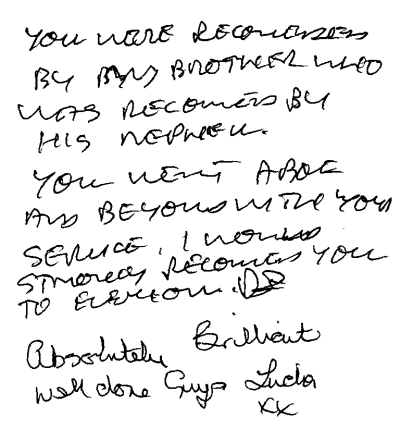 YOU WERE RECOMENDED
BY MY BROTHER WHO
WAS RECOMEND BY
HIS NEPHEW.
YOU WENT ABOVE
AND BEYOND WITH YOUR
SERVICE. I WOULD
STRONGLY RECOMEND YOU
TO EVERYONE.
Absolutely Brilliant
well done Guys Linda
xx